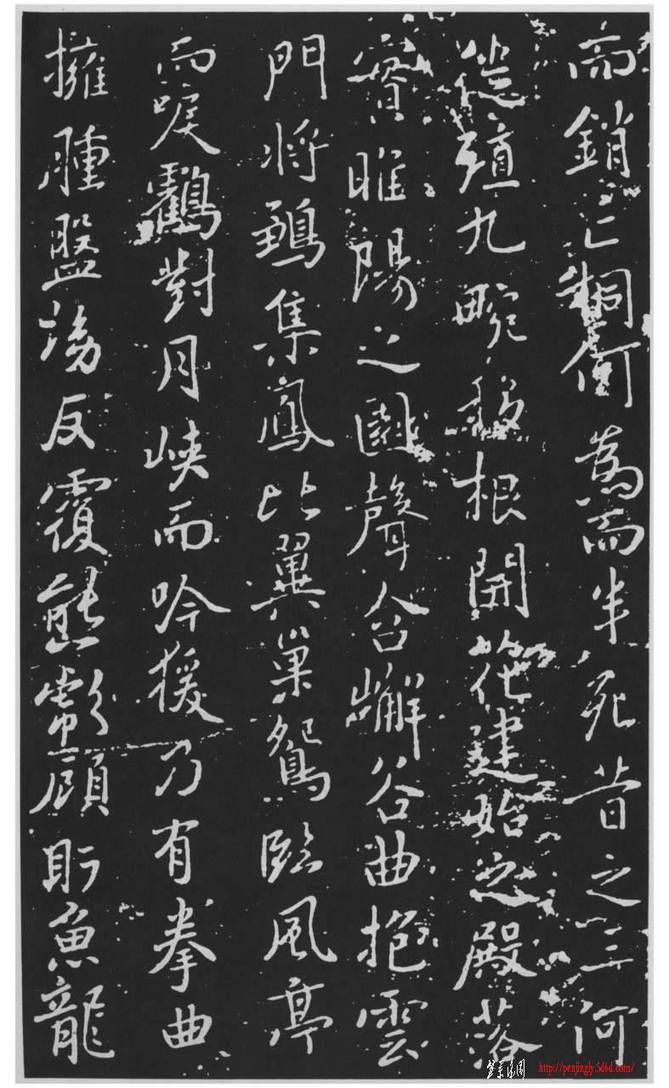 而銷亡桐何爲而半死昔之三河
徙殖九畹移根開花建始之殿落
實睢陽之園聲含嶰谷曲抱雲
門將鶵集鳳比翼巢鴛臨風亭
而唳鸖對月峽而吟猨乃有拳曲
擁腫盤坳反覆熊彪顧盼魚龍
http://penjingly.5d6d.com/